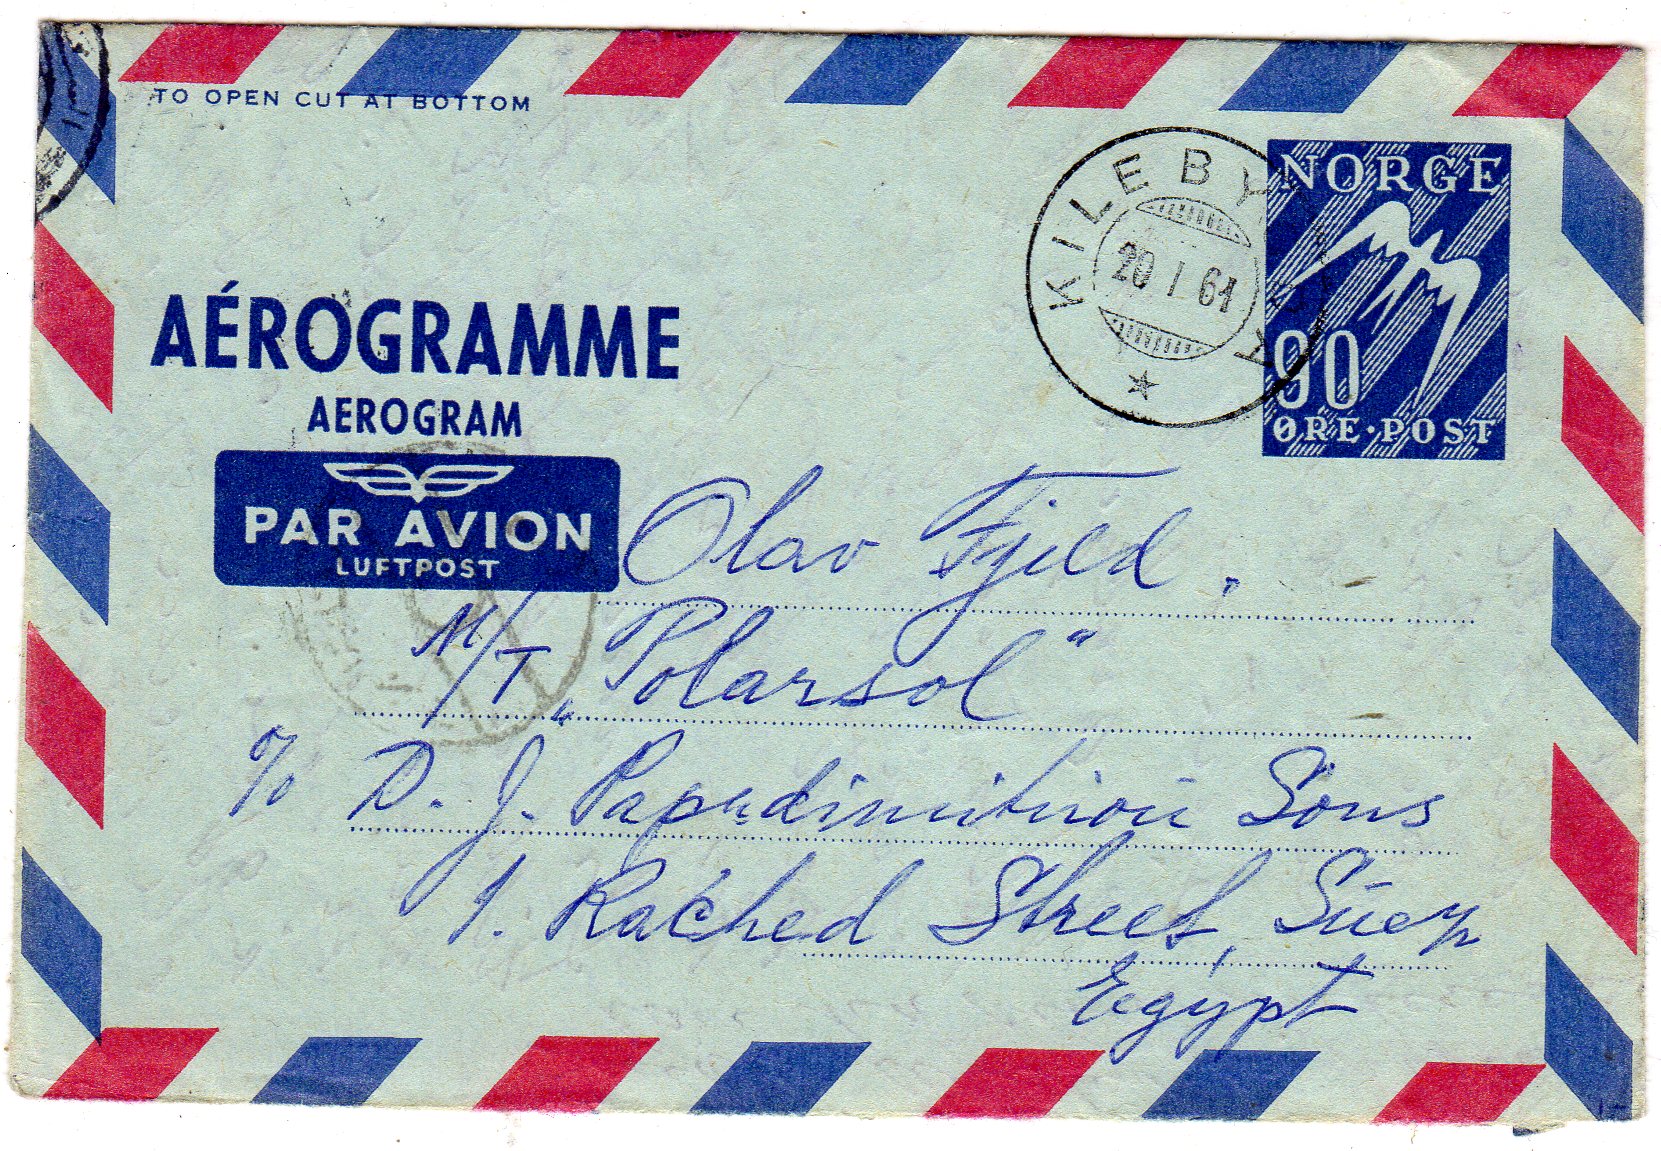 TO OPEN CUT AT BOTTOM
KILEBYGDA
20 1 61
NORGE
90
ØRE·POST
AÉROGRAMME
AEROGRAM
PAR AVION
LUFTPOST
Olav Fjeld.
M/T „Polarsol"
c/o D. J. Papadimitriou Sons
1. Rached Street, Suez
Egypt